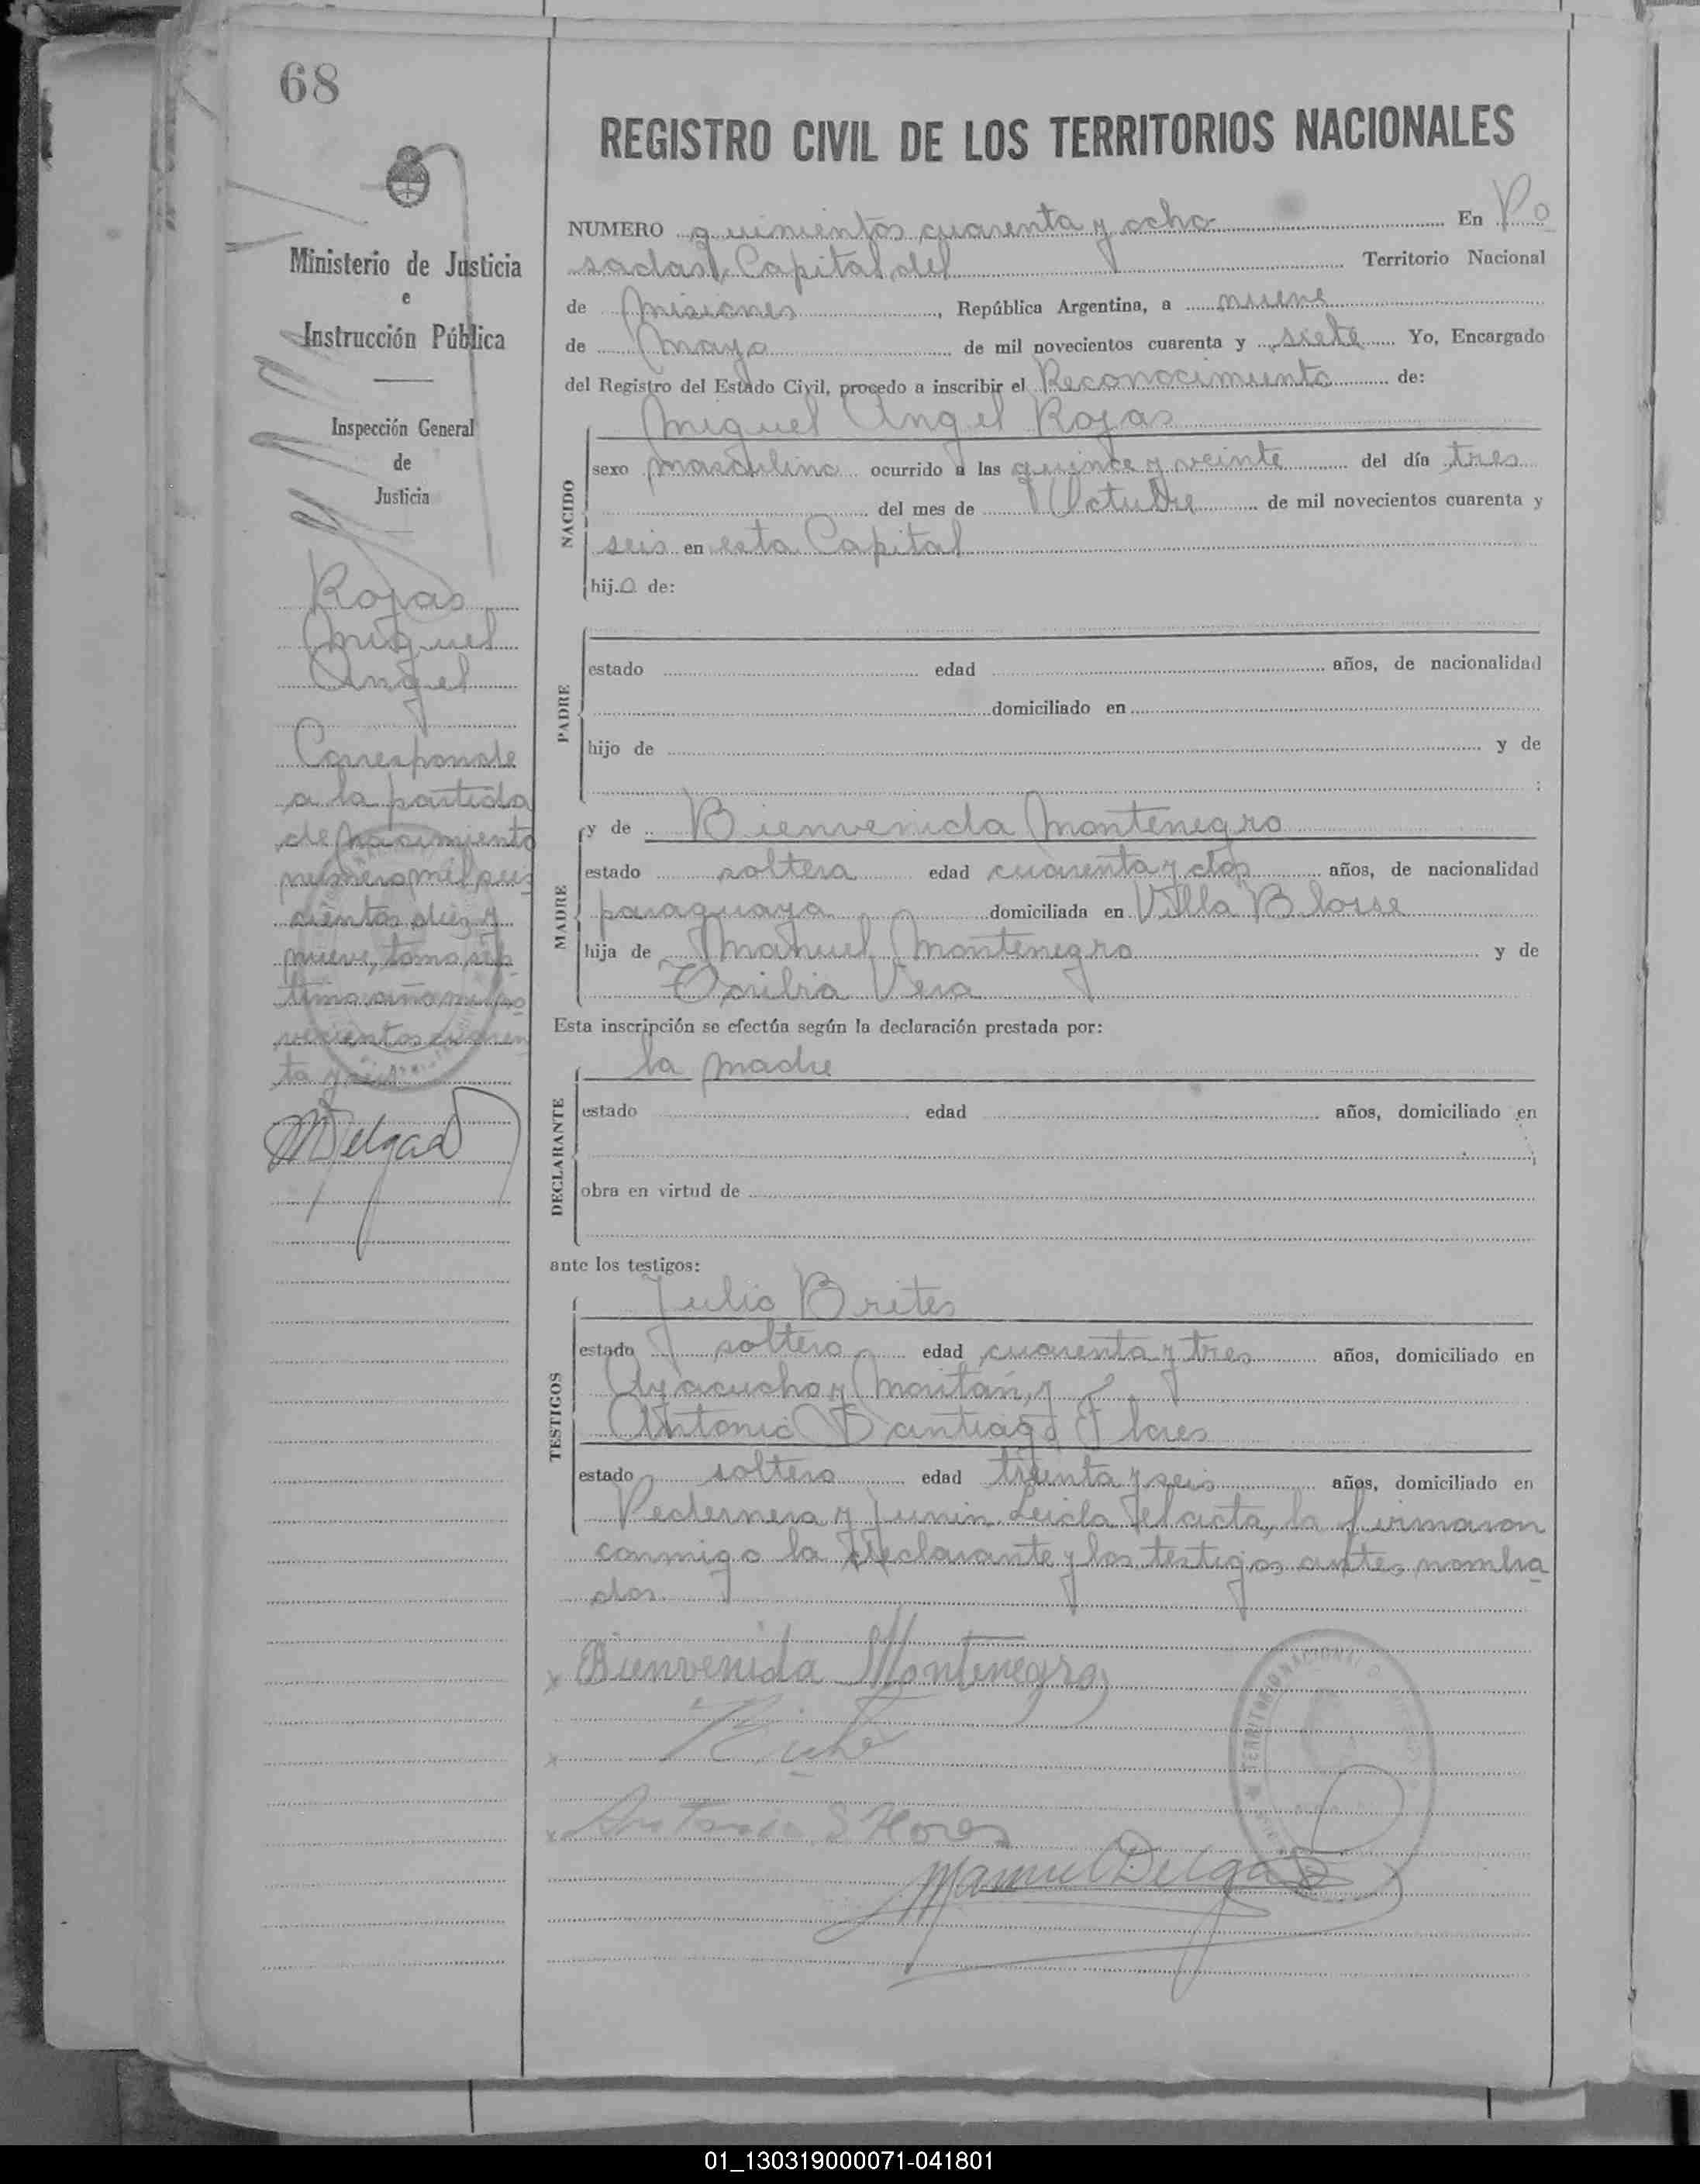 68
Ministerio de Justicia
e
Instrucción Pública
Inspección General
de
Justicia
Rojas
Miguel
Angel
Corresponde
a la partida
de nacimiento
número mil seis
cientos diez y
nueve, tomo sép
timo año mil no
vecientos cuaren
ta y seis
MDelgado
REGISTRO CIVIL DE LOS TERRITORIOS NACIONALES
NUMERO quinientos cuarenta y ocho En Po
sadas, Capital del Territorio Nacional
de Misiones, República Argentina, a nueve
de Mayo de mil novecientos cuarenta y siete Yo, Encargado
del Registro del Estado Civil, procedo a inscribir el Reconocimiento de:
Miguel Angel Rojas
NACIDO
sexo masculino ocurrido a las quince y veinte del día tres
del mes de Octubre de mil novecientos cuarenta y
seis en esta Capital
hijo de:
PADRE
estado edad años, de nacionalidad
domiciliado en
hijo de y de
:
MADRE
y de Bienvenida Montenegro
estado soltera edad cuarenta y dos años, de nacionalidad
paraguaya domiciliada en Villa Blosse
hija de Manuel Montenegro y de
Toribia Vera
Esta inscripción se efectúa según la declaración prestada por:
la madre
DECLARANTE
estado edad años, domiciliado en
;
obra en virtud de
ante los testigos:
TESTIGOS
Julio Brites
estado soltero edad cuarenta y tres años, domiciliado en
Ayacucho y Moritán, y
Antonio Santiago Flores
estado soltero edad treinta y seis años, domiciliado en
Pedernera y Junin. Leida el acta, la firmaron
conmigo la declarante y los testigos antes nombra
dos.
x Bienvenida Montenegro
x
x Antonio S Flores
TERRITORIO NACIONAL
Manuel Delgado
01_130319000071-041801